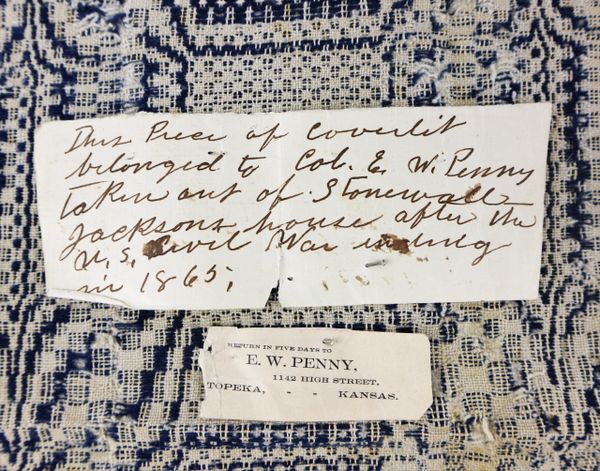 This Piece of Coverlit
belonged to Col. E. W. Penny
taken out of Stonewall
Jacksons house after the
U. S. Civil War ending
in 1865;
RETURN IN FIVE DAYS TO
E. W. PENNY,
1142 HIGH STREET.
TOPEKA, - - KANSAS.